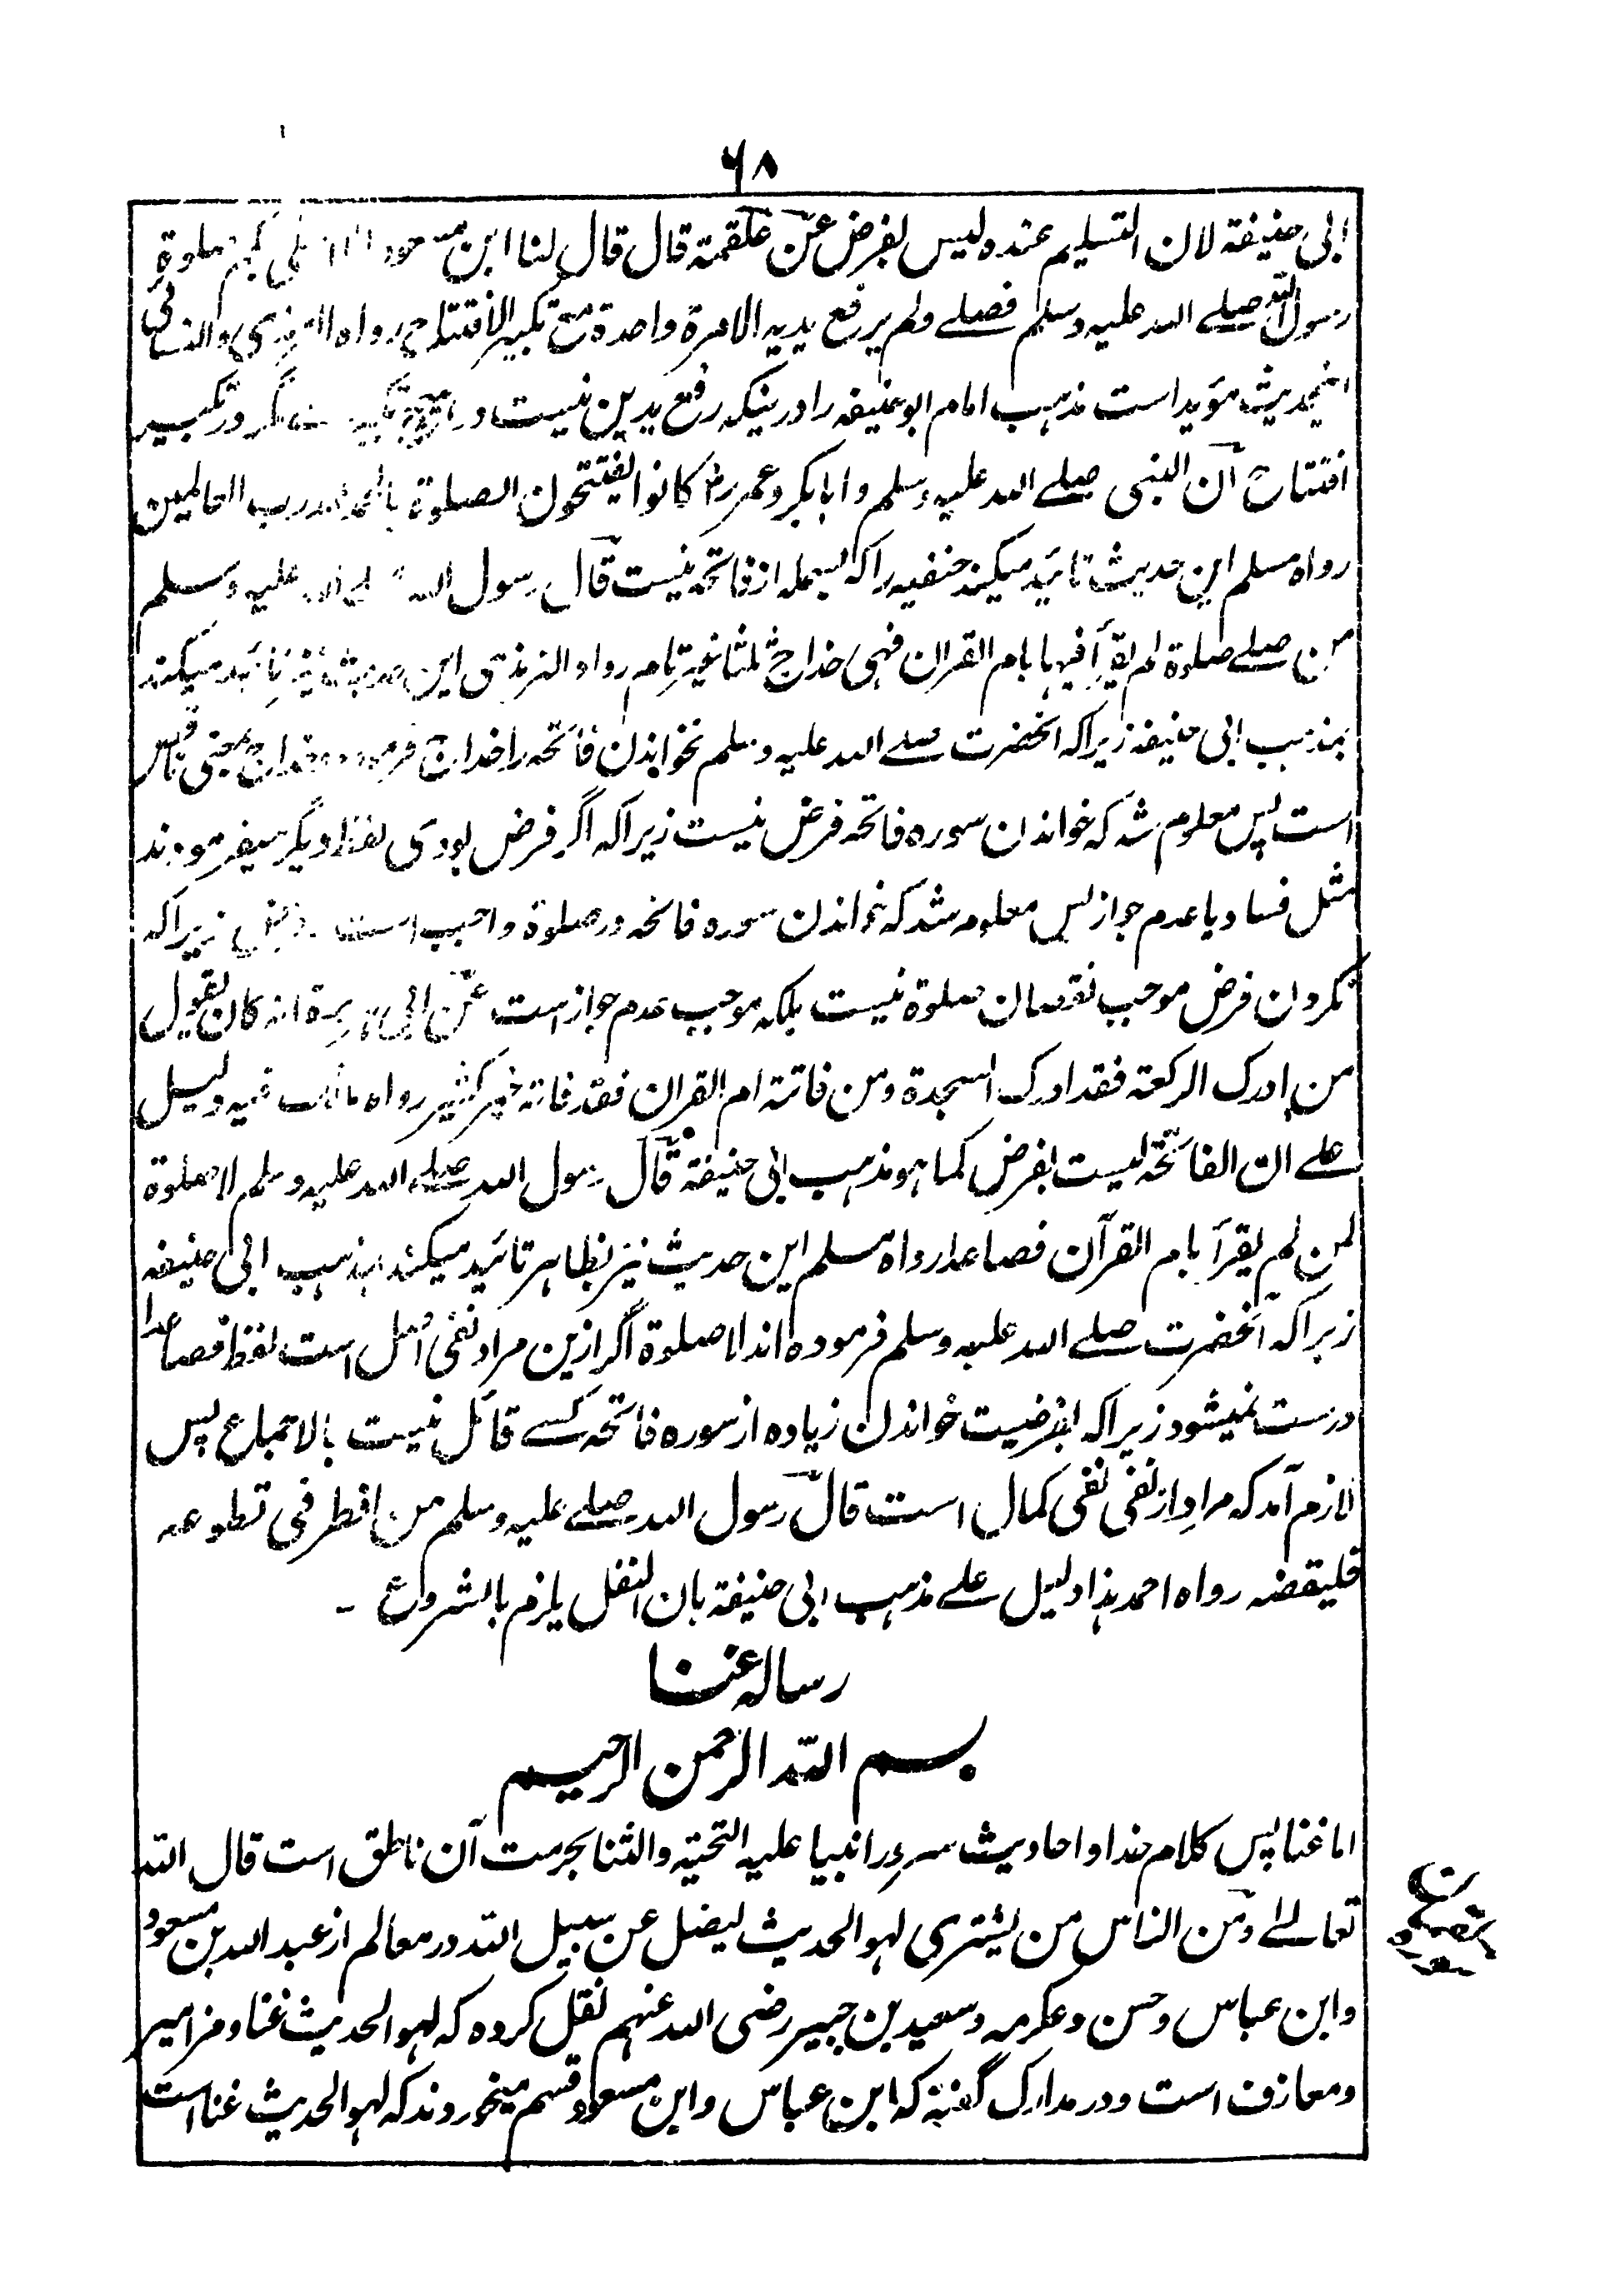 ۶۸
ابی حنیفة لان التسلیم عنده لیس بفرض عن علقمة قال قال لنا ابن مسعود الا اصلی بکم صلوة
رسول الله صلے الله علیه وسلم فصلے ولم یرفع یدیه الا مرة واحدة مع تکبیر الافتتاح رواه الترمذی والنسائی
اینحدیث مؤید است مذهب امام ابوحنیفه را درینکه رفع یدین نیست در تکبیر مگر در تکبیر
افتتاح ان النبی صلے الله علیه وسلم وابابکر وعمر رض کانوا یفتتحون الصلوة بالحمد لله رب العالمین
رواه مسلم این حدیث تائید میکند حنفیه را که بسمله از فاتحه نیست قال رسول الله صلی الله علیه وسلم
من صلے صلوة لم یقرأ فیها بام القران فهی خداج ثلثا غیر تام رواه الترمذی این حدیث نیز تائید میکند
بمذهب ابی حنیفه زیراکه انحضرت صلے الله علیه وسلم نخواندن فاتحه را خداج فرموده وخداج بمعنی ناقص
است پس معلوم شد که خواندن سوره فاتحه فرض نیست زیراکه اگر فرض بودی لفظ دیگر میفرمودند
مثل فساد یا عدم جواز پس معلوم شد که خواندن سوره فاتحه در صلوة واجب است نه فرض زیراکه
نکردن فرض موجب نقصان صلوة نیست بلکه موجب عدم جواز است عن ابی هریرة انه کان یقول
من ادرک الرکعة فقد ادرک السجدة ومن فاتته ام القران فقد فاته خیر کثیر رواه مالک فیه دلیل
علے ان الفاتحة لیست بفرض کما هو مذهب ابی حنیفة قال رسول الله صلے الله علیه وسلم لا صلوة
لمن لم یقرأ بام القرآن فصاعدا رواه مسلم این حدیث نیز بظاهر تائید میکند بمذهب ابی حنیفه
زیراکه آنحضرت صلے الله علیه وسلم فرموده اند لا صلوة اگر ازین مراد نفی اصل است لفظ فصاعدا
درست نمیشود زیراکه بفرضیت خواندن زیاده از سوره فاتحه کسے قائل نیست بالاجماع پس
لازم آمد که مراد از نفی نفی کمال است قال رسول الله صلے علیه وسلم من افطر فی تطوعه
فلیقضه رواه احمد هذا دلیل علے مذهب ابی حنیفة بان النفل یلزم بالشروع -
رساله غنا
بسم الله الرحمن الرحیم
اما غنا پس کلام خدا و احادیث سرور انبیا علیه التحیة والثنا بحرمت آن ناطق است قال الله
تعالےٰ ومن الناس من یشتری لهو الحدیث لیضل عن سبیل الله در معالم از عبد الله بن مسعود
وابن عباس وحسن وعکرمه وسعید بن جبیر رضی الله عنهم نقل کرده که لهو الحدیث غنا ومزامیر
ومعازف است ودر مدارک گفته که ابن عباس وابن مسعود قسم میخوردند که لهو الحدیث غنا است